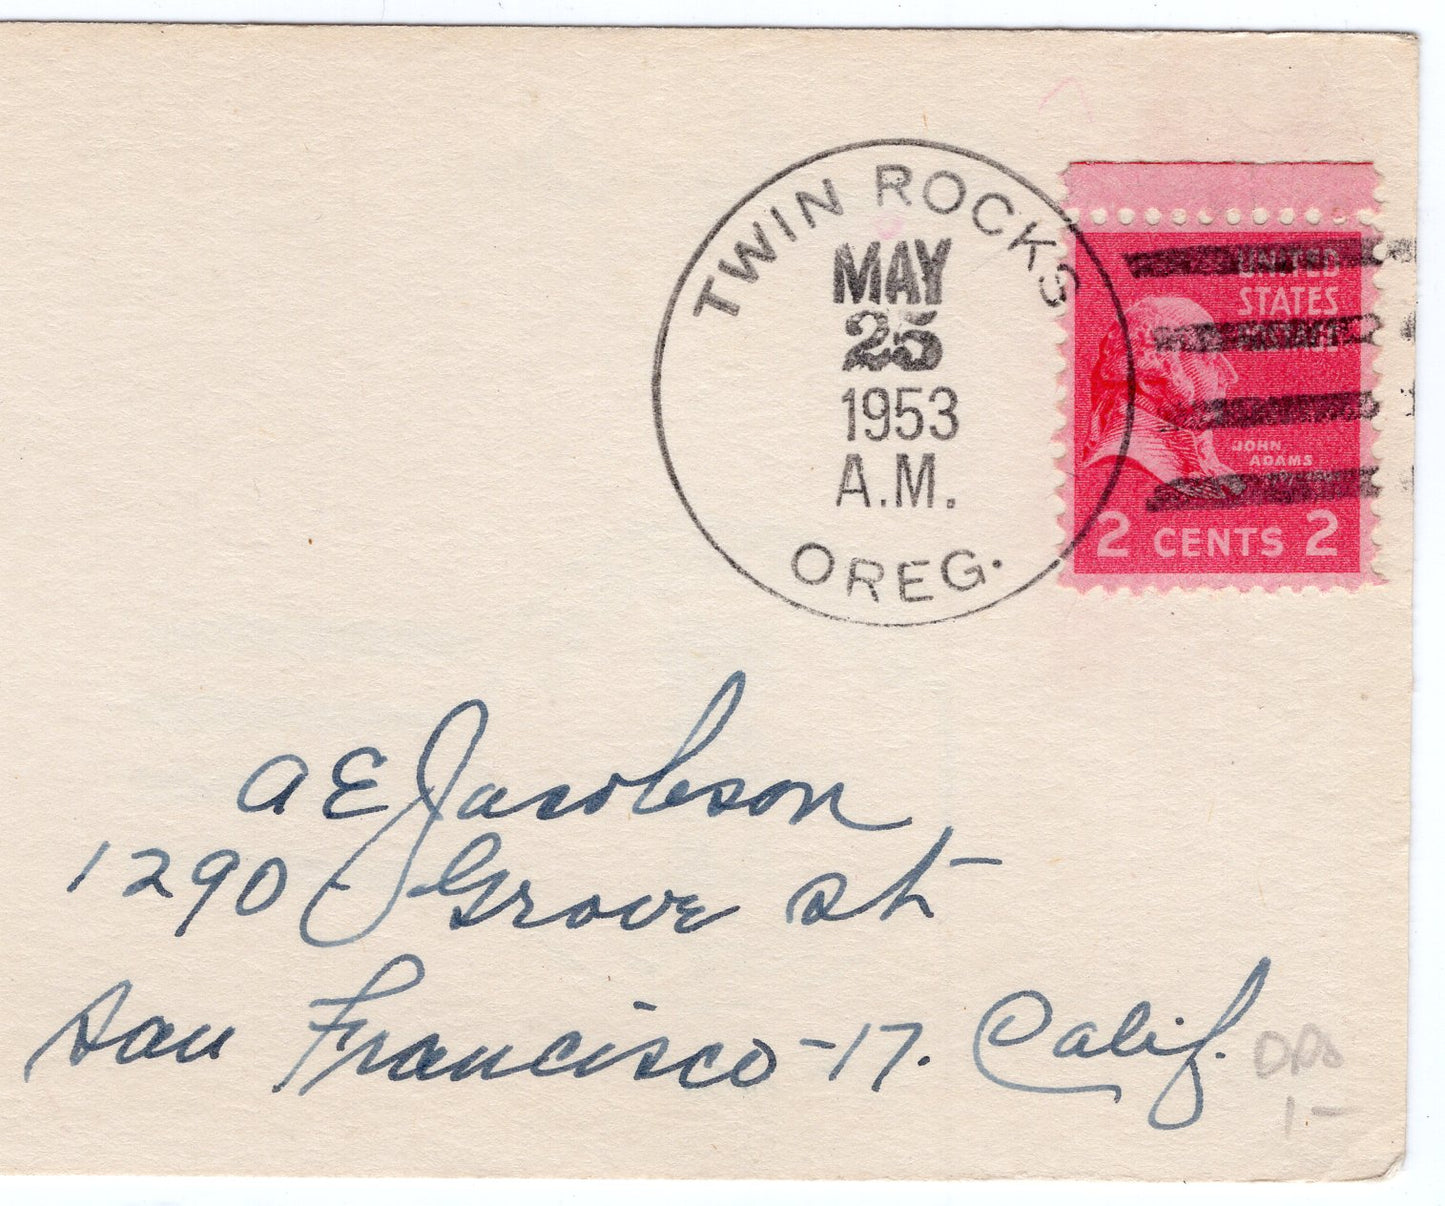 TWIN ROCKS
MAY
25
1953
A.M.
OREG.
UNITED
STATES
POSTAGE
JOHN
ADAMS
2 CENTS 2
A E Jacobson
1290 Grove St
San Francisco - 17. Calif.
DPO
1-